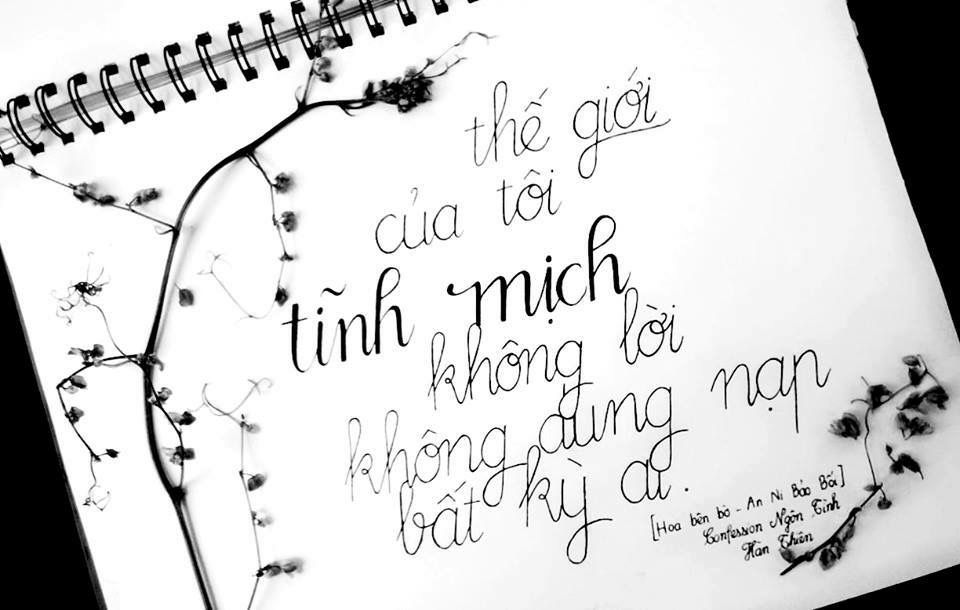 thế giới
của tôi
tĩnh mịch
không lời
không dung nạp
bất kỳ ai.
[Hoa bên bờ - An Ni Bảo Bối]
Confession Ngôn Tình
Hàn Thiên